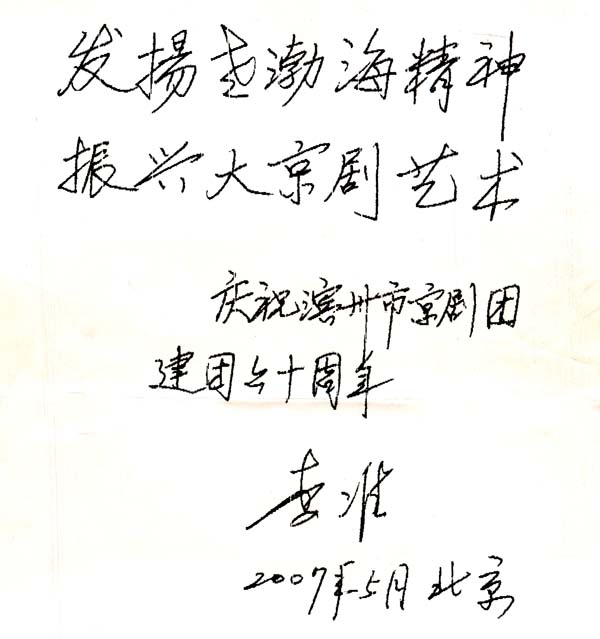 发揚老渤海精神
振兴大京剧艺术
庆祝滨州市京剧团
建团六十周年
李准
2007年5月北京